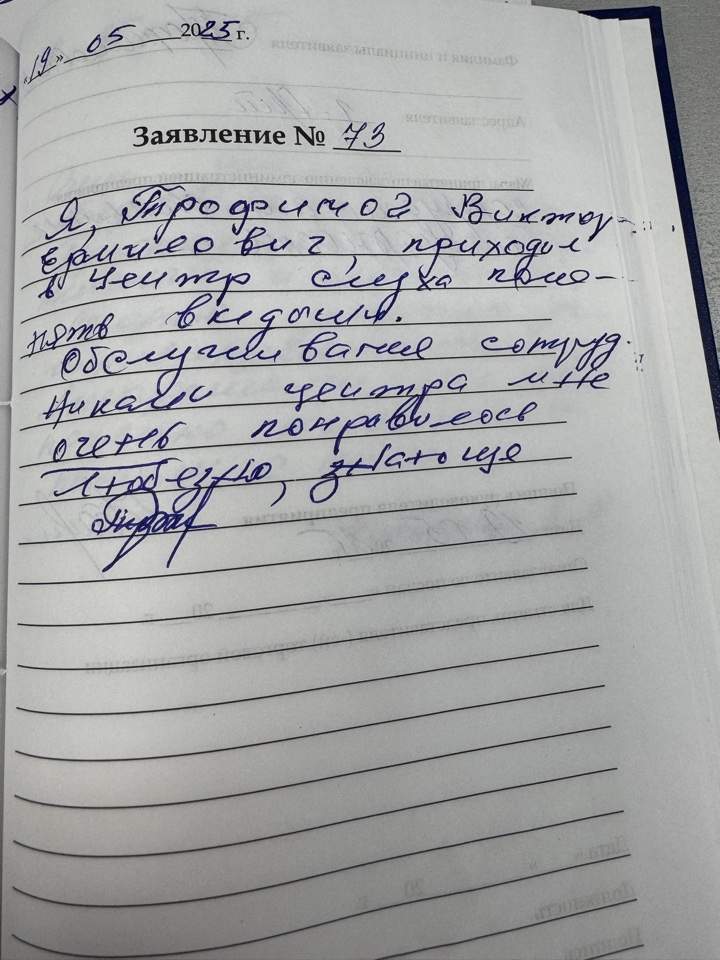 «19» 05 2025 г.
Заявление № 73
Я, Трофимой Виктор
приходил
в центр слуха поме-
нять вкидыши.
Обслуживание сотруд-
никами центра мне
очень понравилось
Любезно, знающе